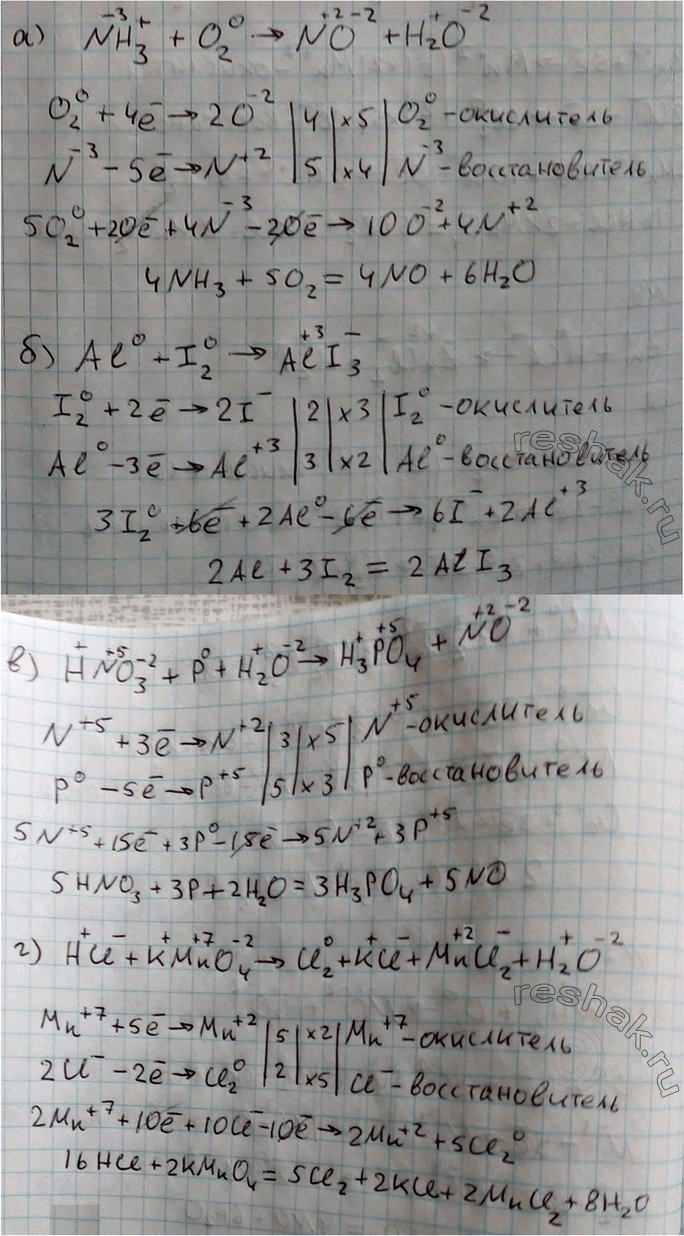 а) N⁻³H₃⁺ + O₂⁰ → N⁺²O⁻² + H₂⁺O⁻²
O₂⁰ + 4ē → 2O⁻² | 4 | ×5 | O₂⁰ - окислитель
N⁻³ - 5ē → N⁺² | 5 | ×4 | N⁻³ - восстановитель
5O₂⁰ + 20ē + 4N⁻³ - 20ē → 10O⁻² + 4N⁺²
4NH₃ + 5O₂ = 4NO + 6H₂O
б) Al⁰ + I₂⁰ → Al⁺³I₃⁻
I₂⁰ + 2ē → 2I⁻ | 2 | ×3 | I₂⁰ - окислитель
Al⁰ - 3ē → Al⁺³ | 3 | ×2 | Al⁰ - восстановитель
3I₂⁰ + 6ē + 2Al⁰ - 6ē → 6I⁻ + 2Al⁺³
2Al + 3I₂ = 2AlI₃
в) H⁺N⁺⁵O₃⁻² + P⁰ + H₂⁺O⁻² → H₃⁺P⁺⁵O₄ + N⁺²O⁻²
N⁺⁵ + 3ē → N⁺² | 3 | ×5 | N⁺⁵ - окислитель
P⁰ - 5ē → P⁺⁵ | 5 | ×3 | P⁰ - восстановитель
5N⁺⁵ + 15ē + 3P⁰ - 15ē → 5N⁺² + 3P⁺⁵
5HNO₃ + 3P + 2H₂O = 3H₃PO₄ + 5NO
г) H⁺Cl⁻ + K⁺Mn⁺⁷O₄⁻² → Cl₂⁰ + K⁺Cl⁻ + Mn⁺²Cl₂⁻ + H₂⁺O⁻²
Mn⁺⁷ + 5ē → Mn⁺² | 5 | ×2 | Mn⁺⁷ - окислитель
2Cl⁻ - 2ē → Cl₂⁰ | 2 | ×5 | Cl⁻ - восстановитель
2Mn⁺⁷ + 10ē + 10Cl⁻ - 10ē → 2Mn⁺² + 5Cl₂⁰
16HCl + 2KMnO₄ = 5Cl₂ + 2KCl + 2MnCl₂ + 8H₂O
reshak.ru
reshak.ru